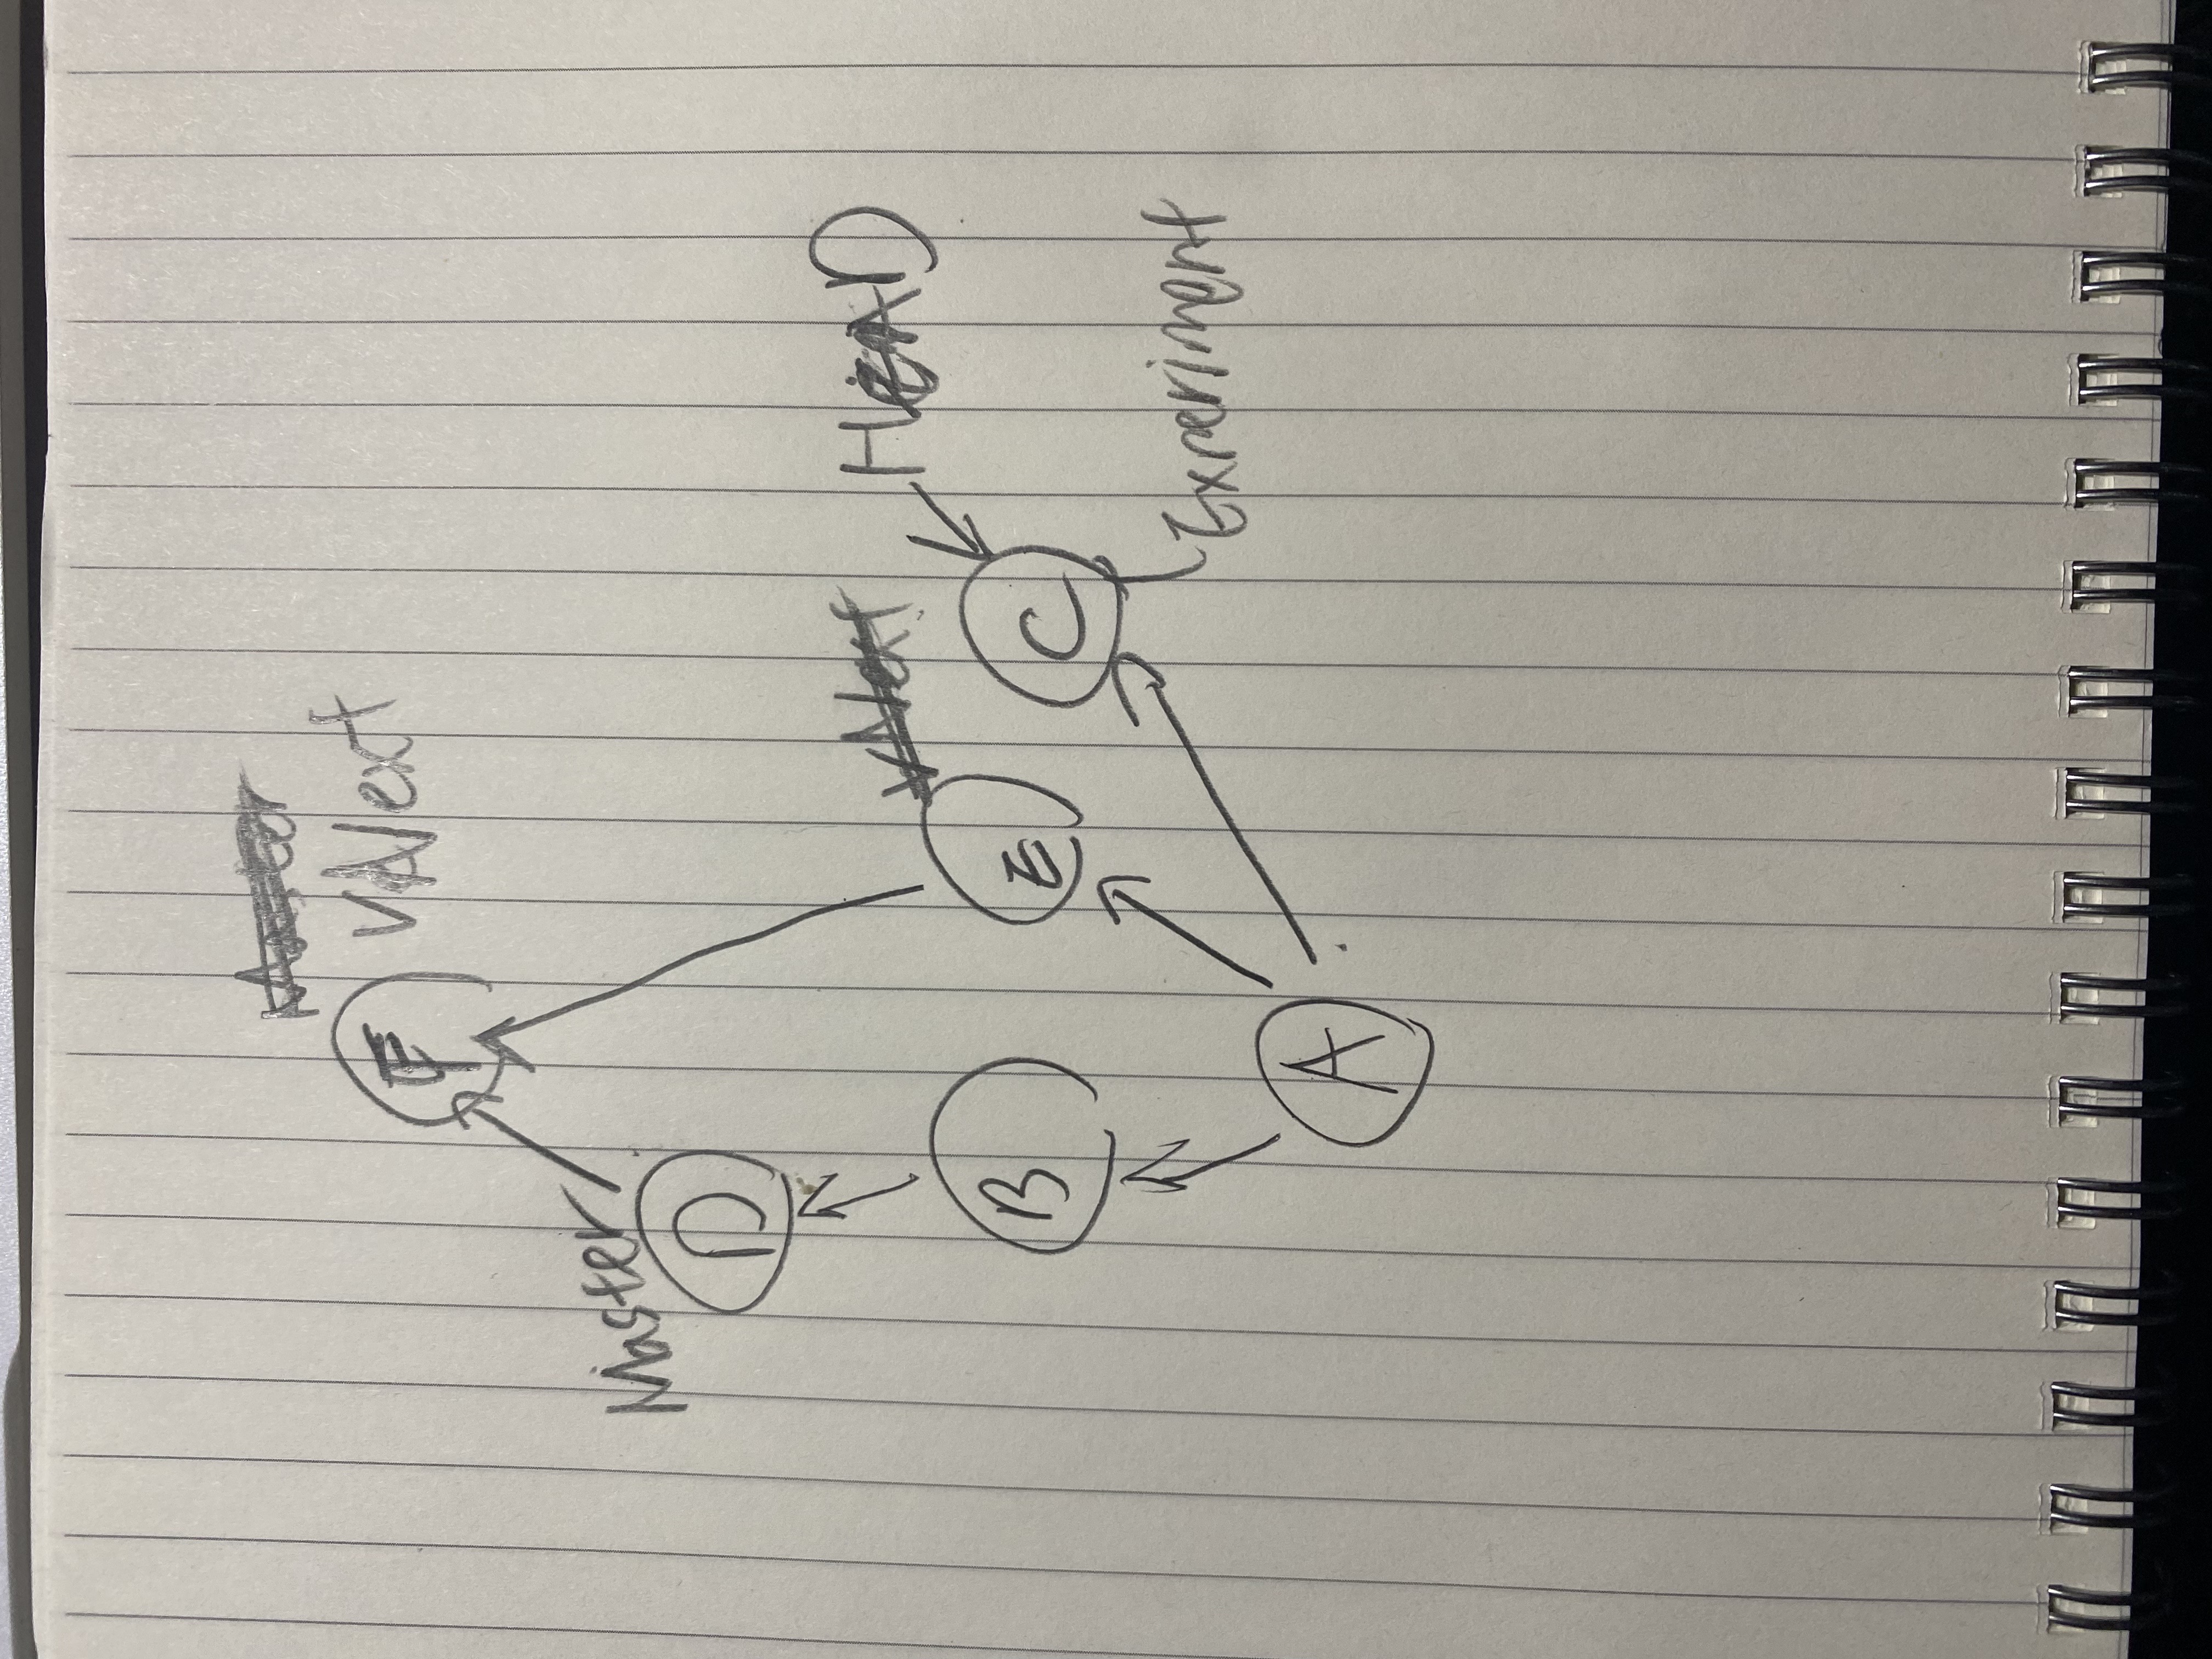 Master
F
VNext
Master
D
VNext
HEAD
B
E
C
Experiment
A